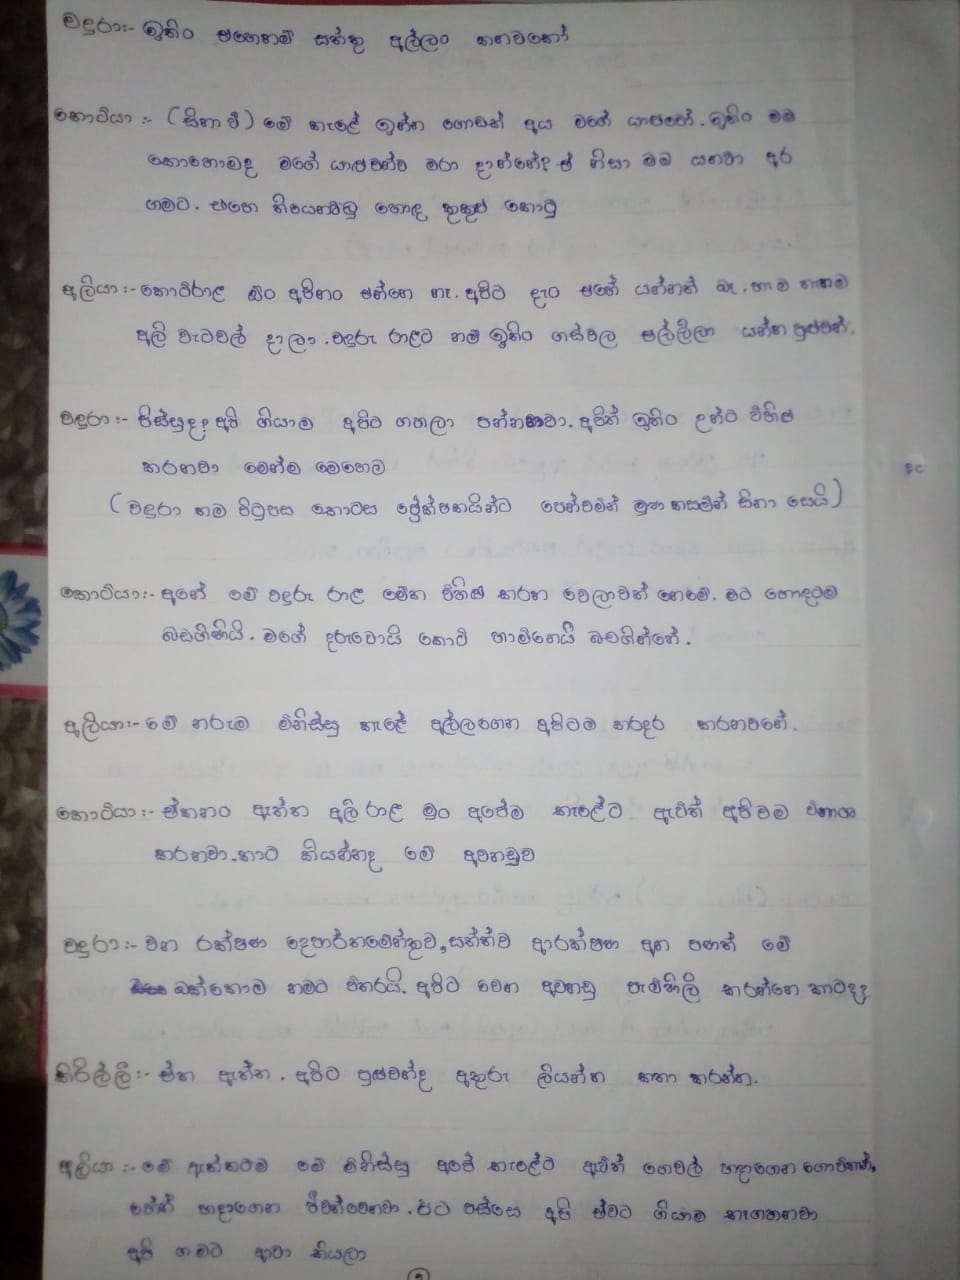 වඳුරා:- ඉතිං එහෙනම් සත්තු අල්ලං කනවකෝ
කොටියා :- (සිනා වී) මේ කැලේ ඉන්න ගොඩක් අය මගේ යාළුවෝ. ඉතිං මම
කොහොමද මගේ යාළුවන්ව මරා දාන්නේද ඒ නිසා මම යනවා අර
ගමට. එහෙ තියෙනවමු හොඳ කුකුළු කොටු
අලියා:- කොටිරාළ ඕං අපිනං එන්නෙ නෑ. අපිට දැං එහේ යන්නත් බෑ. හැම තැනම
අලි වැටවල් දාලා. වඳුරු රාළට නම් ඉතිං ගස්වල එල්ලිලා යන්න පුළුවන්.
වඳුරා:- පිස්සුද; අපි ගියාම අපිට ගහලා පන්නනවා. අපිත් ඉතිං උන්ට විහිළු
කරනවා මෙන්න මෙහෙම
(වඳුරා තම පිටුපස කොටස ප්‍රේක්ෂකයින්ට පෙන්වමින් මූණ කසමින් සිනා සෙයි)
කොටියා:- අනේ මේ වඳුරු රාළ මේක විහිළු කරන වෙලාවක් නෙමේ. මට හොඳටම
බඩගිනියි. මගේ දරුවොයි කොටි හාමිනෙයි බඩගින්නේ.
අලියා:- මේ නරුම මිනිස්සු කැලේ අල්ලගෙන අපිටම කරදර කරනවනේ.
කොටියා:- ඒකනං ඇත්ත අලි රාළ මුං අපේම කැලේට ඇවිත් අපිවම විනාශ
කරනවා. කාට කියන්නද මේ අවනඩුව
වඳුරා:- වන රක්ෂණ දෙපාර්තමේන්තුව, සත්ත්ව ආරක්ෂණ අන පනත් මේ
ඔක්කොම නමට විතරයි. අපිට වෙන අවනඩු පැමිණිලි කරන්නෙ කාටදද
කිරිල්ලී:- ඒක ඇත්ත. අපිට පුළුවන්ද අකුරු ලියන්න කතා කරන්න.
අලියා :- මේ ඇත්තටම මේ මිනිස්සු අපේ කැලේට ඇවිත් ගෙවල් හදාගෙන ගොවිතැන්
හදාගෙන ජීවත්වෙනවා. ඊට පස්සෙ අපි ඒවට ගියාම කෑගහනවා
අපි ගමට ආවා කියලා